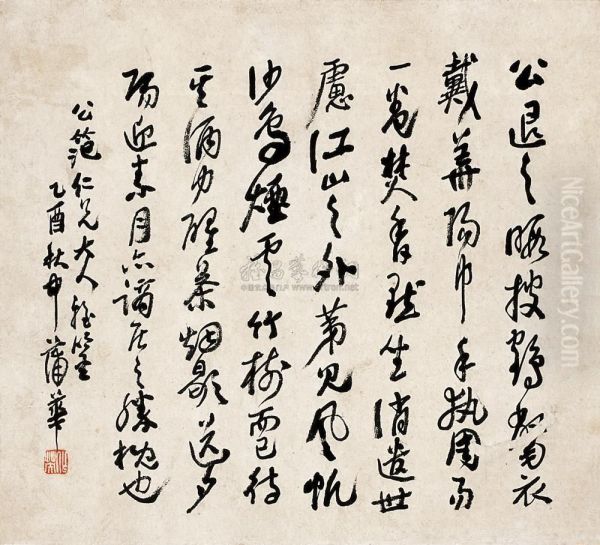 公退之暇披鶴氅衣
戴華陽巾手執周易
一卷焚香默坐消遣世
慮江山之外第見風帆
沙鳥煙雲竹樹而已待
其酒力醒茶烟歇送夕
陽迎素月亦謫居之勝概也
公範仁兄大人雅鑒
乙酉秋中蒲華
NiceArtGallery.com